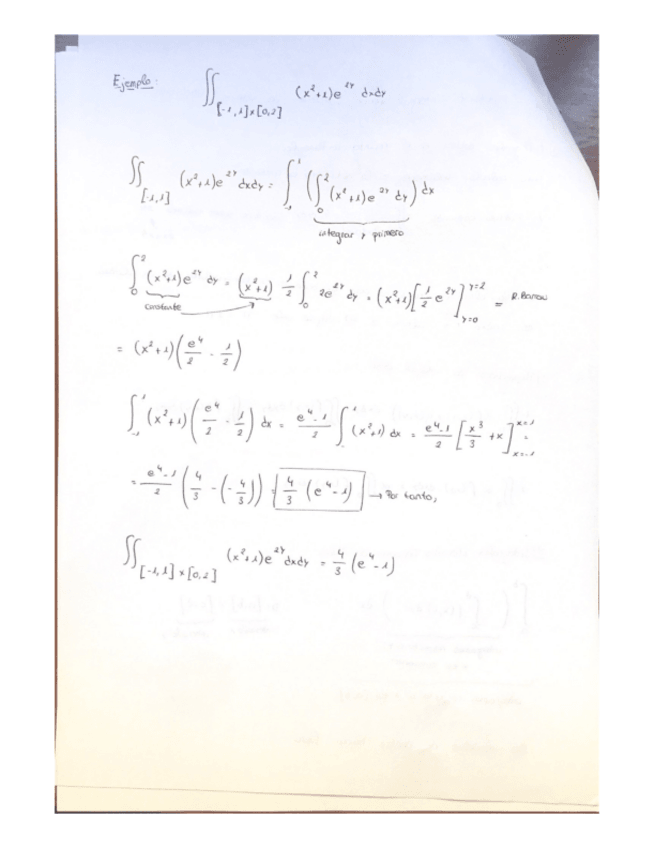 Ejemplo: ∬_{[-1,1]×[0,2]} (x²+1)e^{2y} dxdy
∬_{[-1,1]} (x²+1)e^{2y} dxdy = ∫_{-1}^{1} (∫_{0}^{2} (x²+1)e^{2y} dy) dx
integrar y primero
∫_{0}^{2} (x²+1)e^{2y} dy = (x²+1) 1/2 ∫_{0}^{2} 2e^{2y} dy = (x²+1)[1/2 e^{2y}]_{y=0}^{y=2} = R.Barrow
constante
= (x²+1)(e⁴/2 - 1/2)
∫_{-1}^{1} (x²+1)(e⁴/2 - 1/2) dx = e⁴-1/2 ∫_{-}^{1} (x²+1) dx = e⁴-1/2 [x³/3 + x]_{x=-1}^{x=1} =
= e⁴-1/2 (4/3 - (-4/3)) = 4/3 (e⁴-1) → Por tanto,
∬_{[-1,1]×[0,2]} (x²+1)e^{2y} dxdy = 4/3 (e⁴-1)